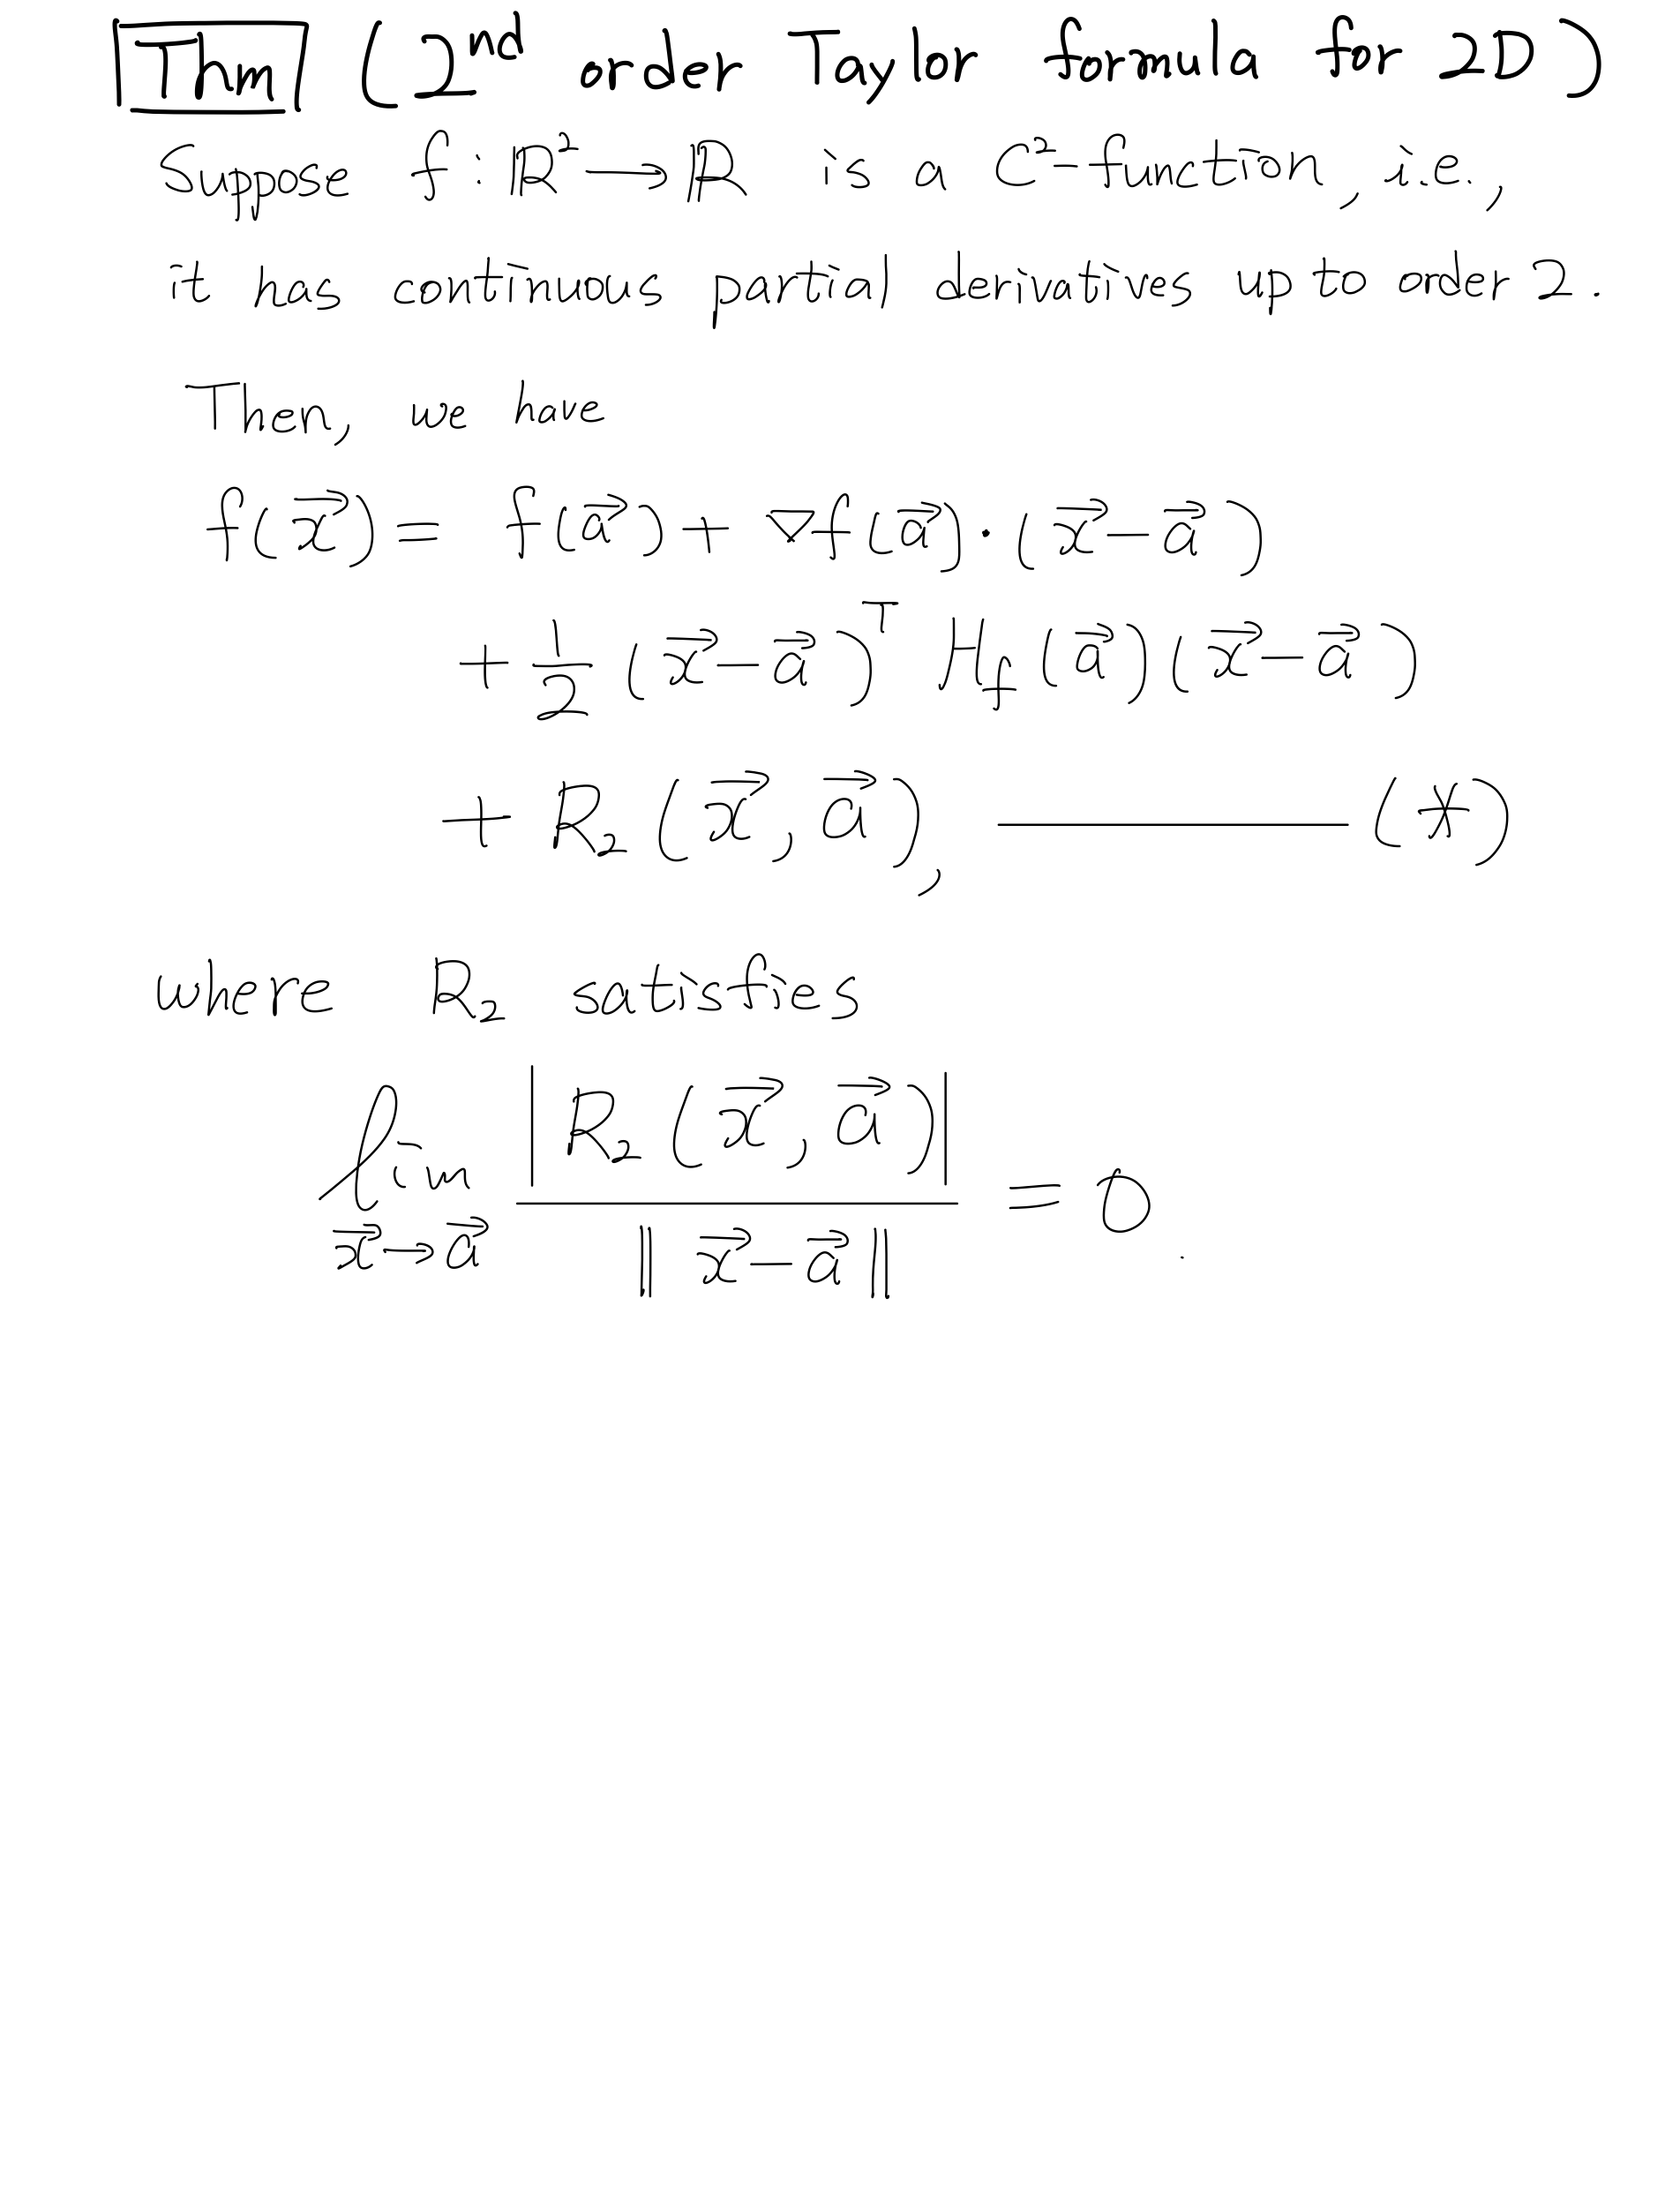 Thm (2nd order Taylor formula for 2D)
Suppose f : ℝ² → ℝ is a C²-function, i.e.,
it has continuous partial derivatives up to order 2.
Then, we have
f(x⃗) = f(a⃗) + ∇f(a⃗) · (x⃗ − a⃗)
+ 1/2 (x⃗ − a⃗)ᵀ H_f (a⃗)(x⃗ − a⃗)
+ R₂ (x⃗, a⃗), ——— (*)
where R₂ satisfies
lim_{x⃗→a⃗} |R₂ (x⃗, a⃗)| / ‖x⃗ − a⃗‖ = 0.